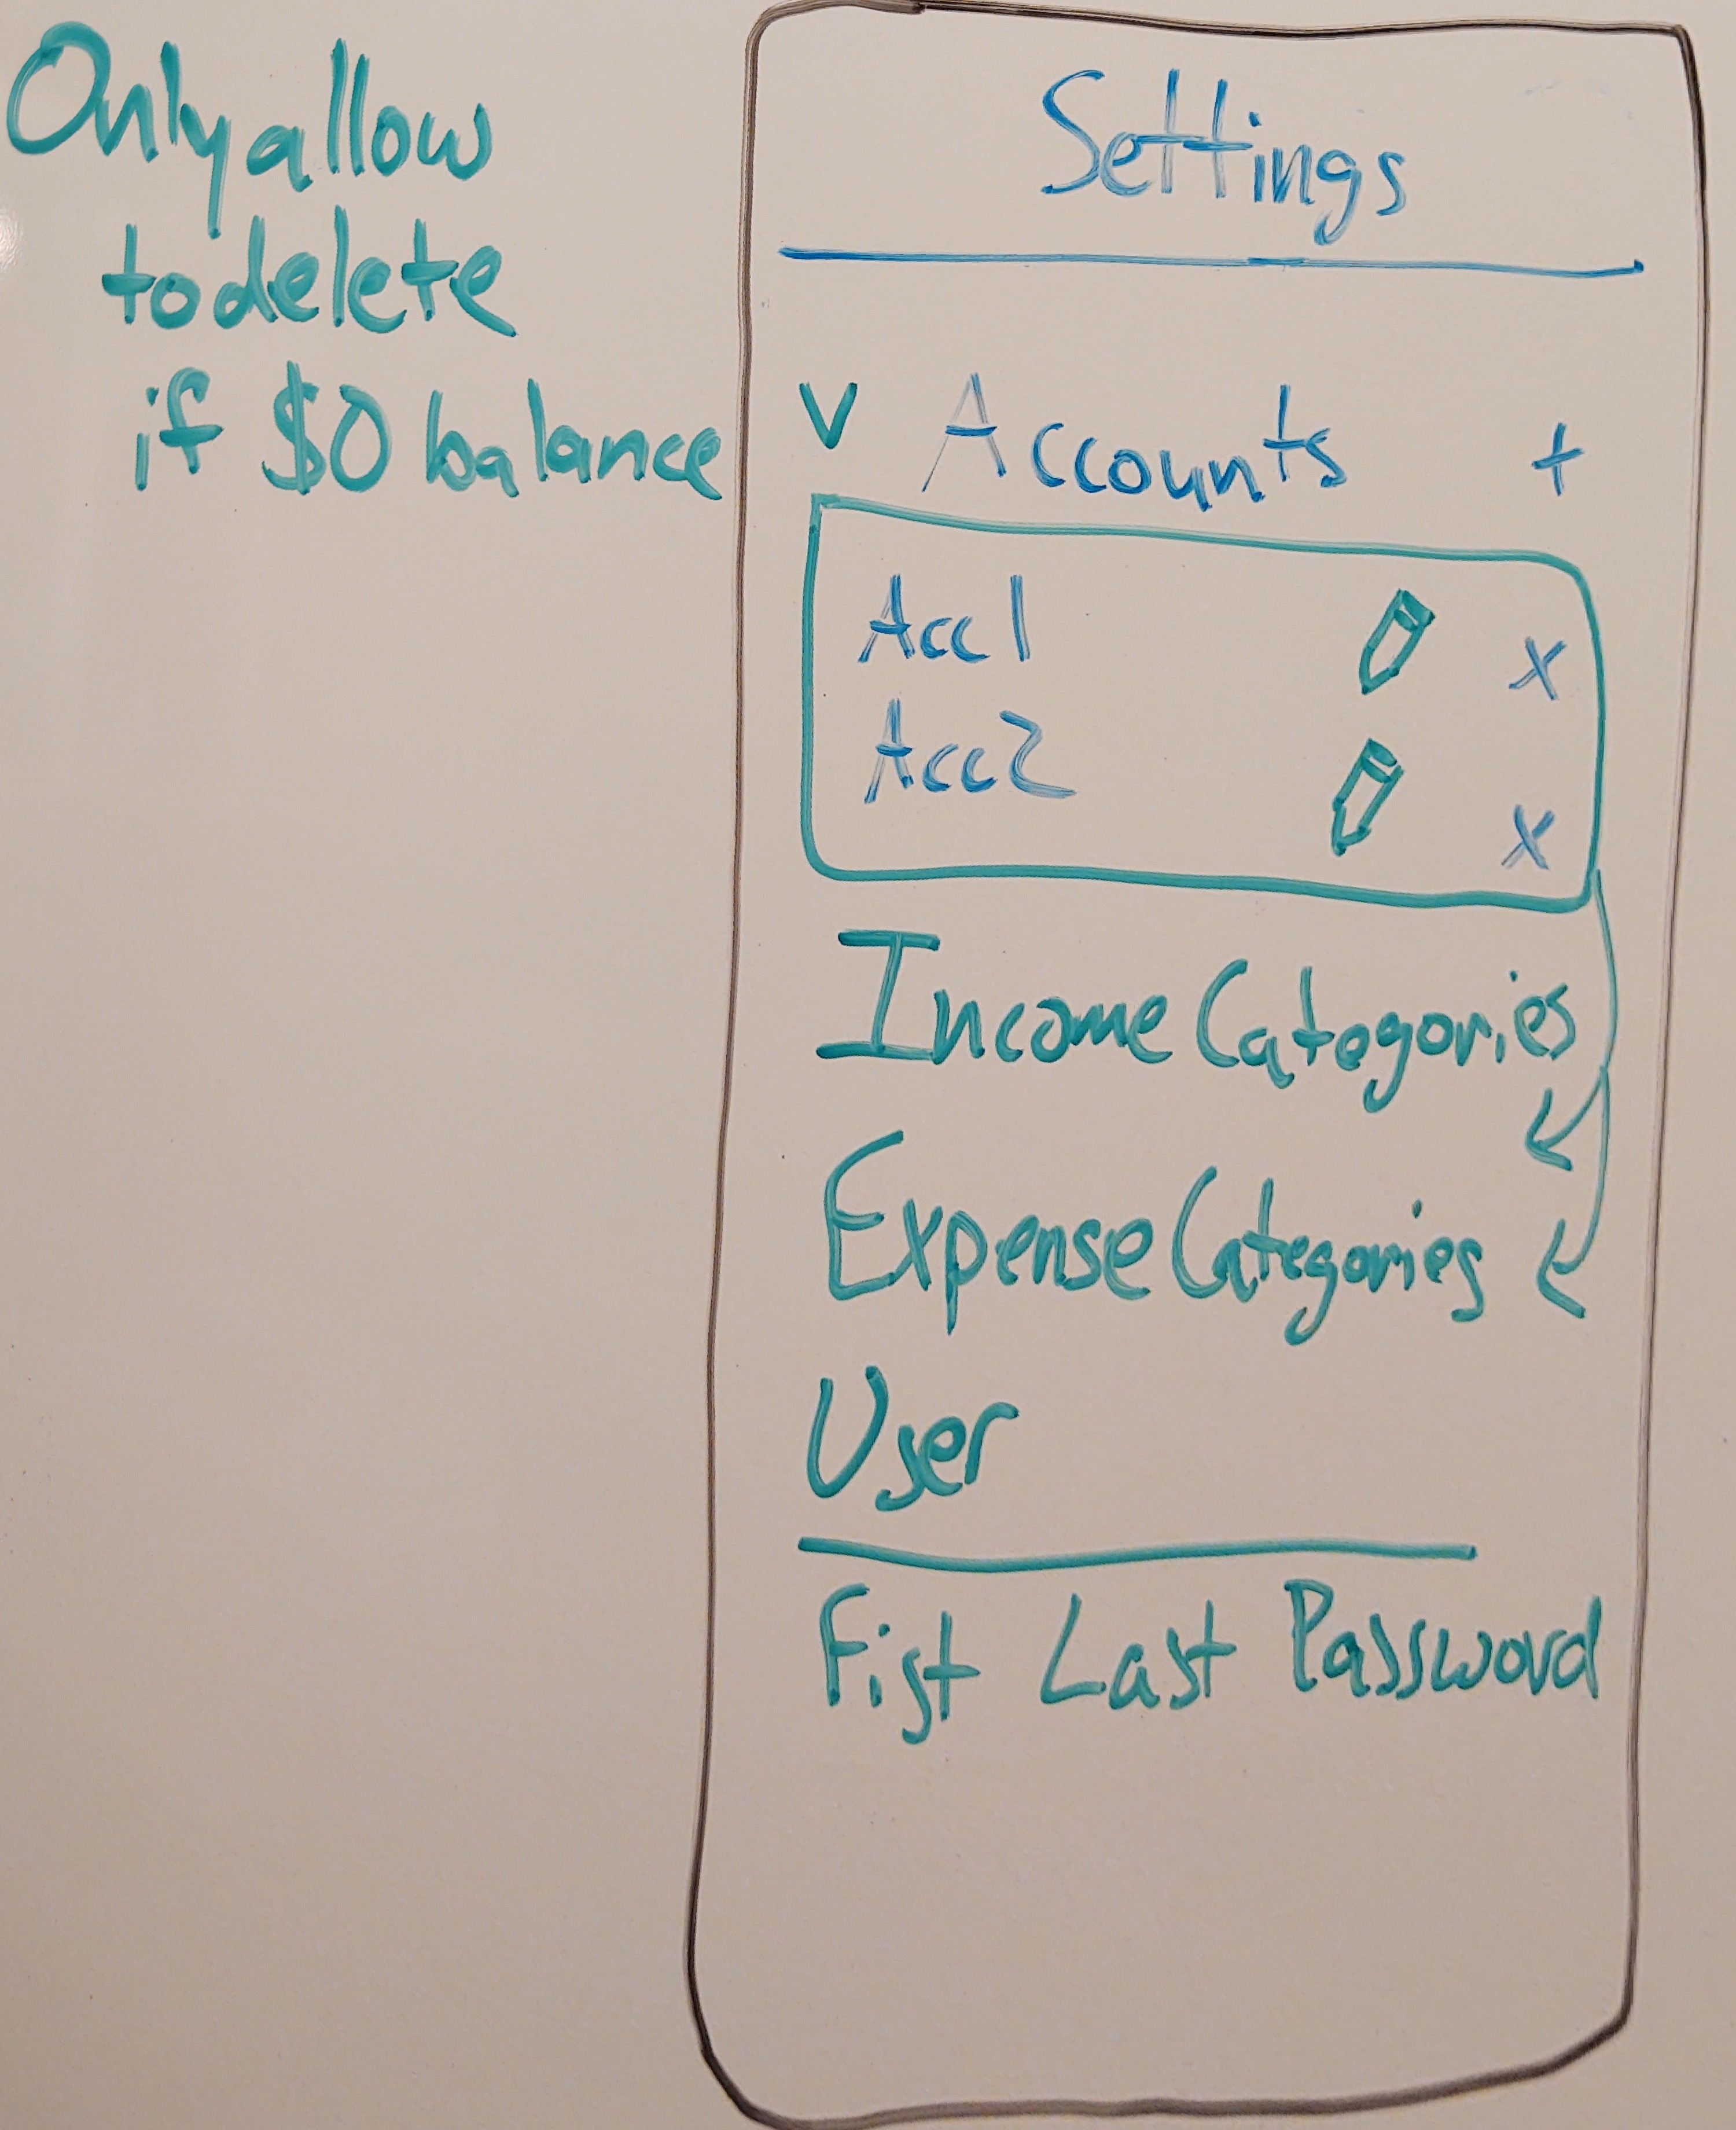 Only allow
to delete
if $0 balance
Settings
v Accounts +
Acc1 x
Acc2 x
Income Categories
Expense Categories
User
Fist Last Password